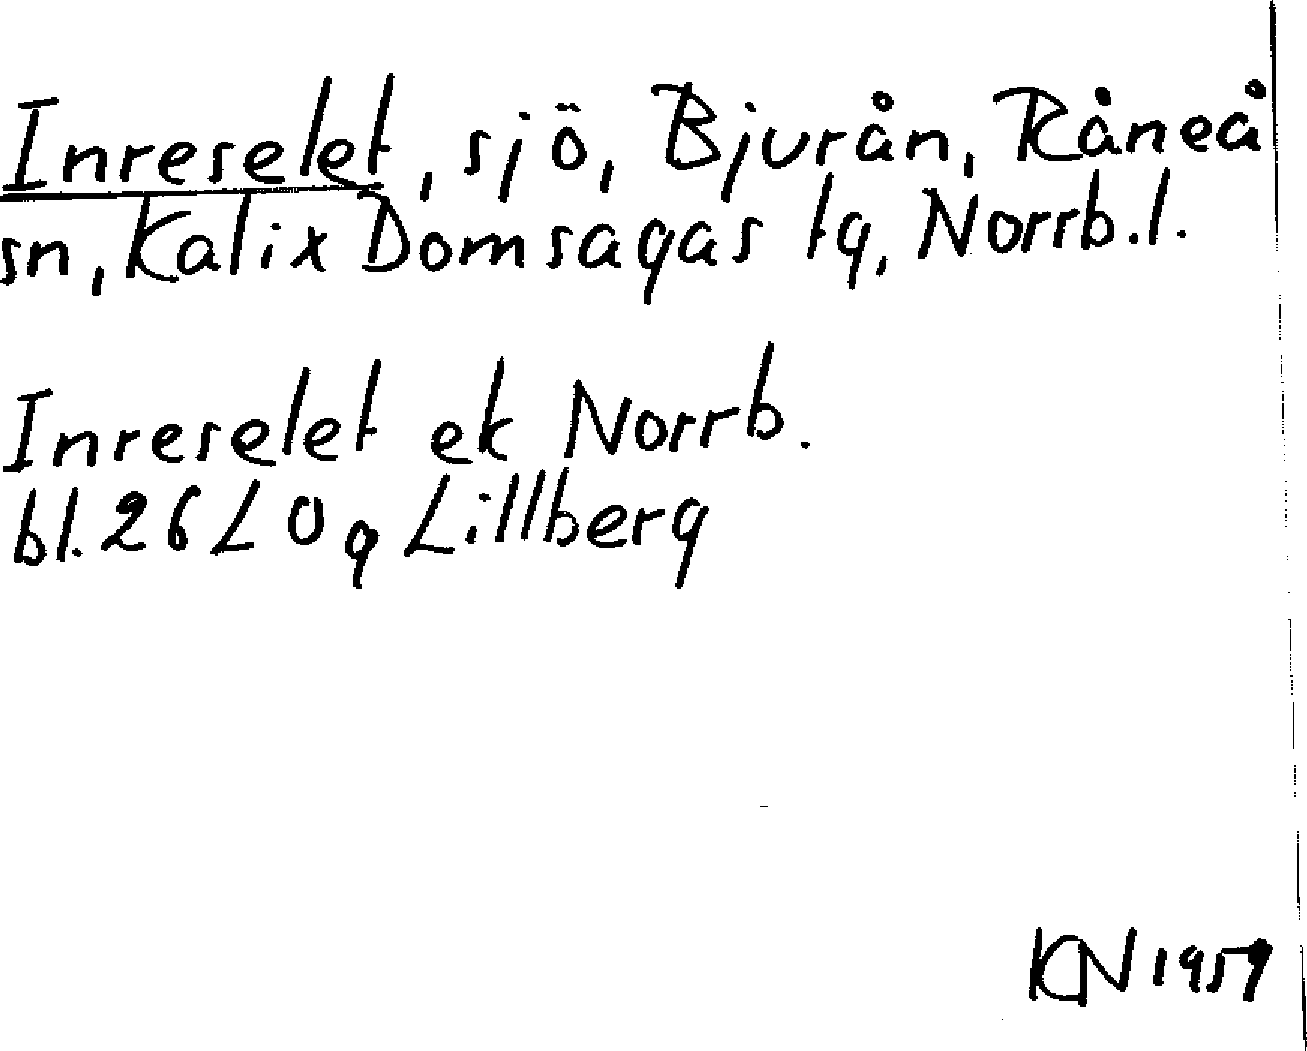 Inreselet, sjö, Bjurån, Råneå
sn, Kalix Domsagas tg, Norrb.l.
Inreselet ek Norrb.
bl. 26 L 0 g Lillberg
KN 1959